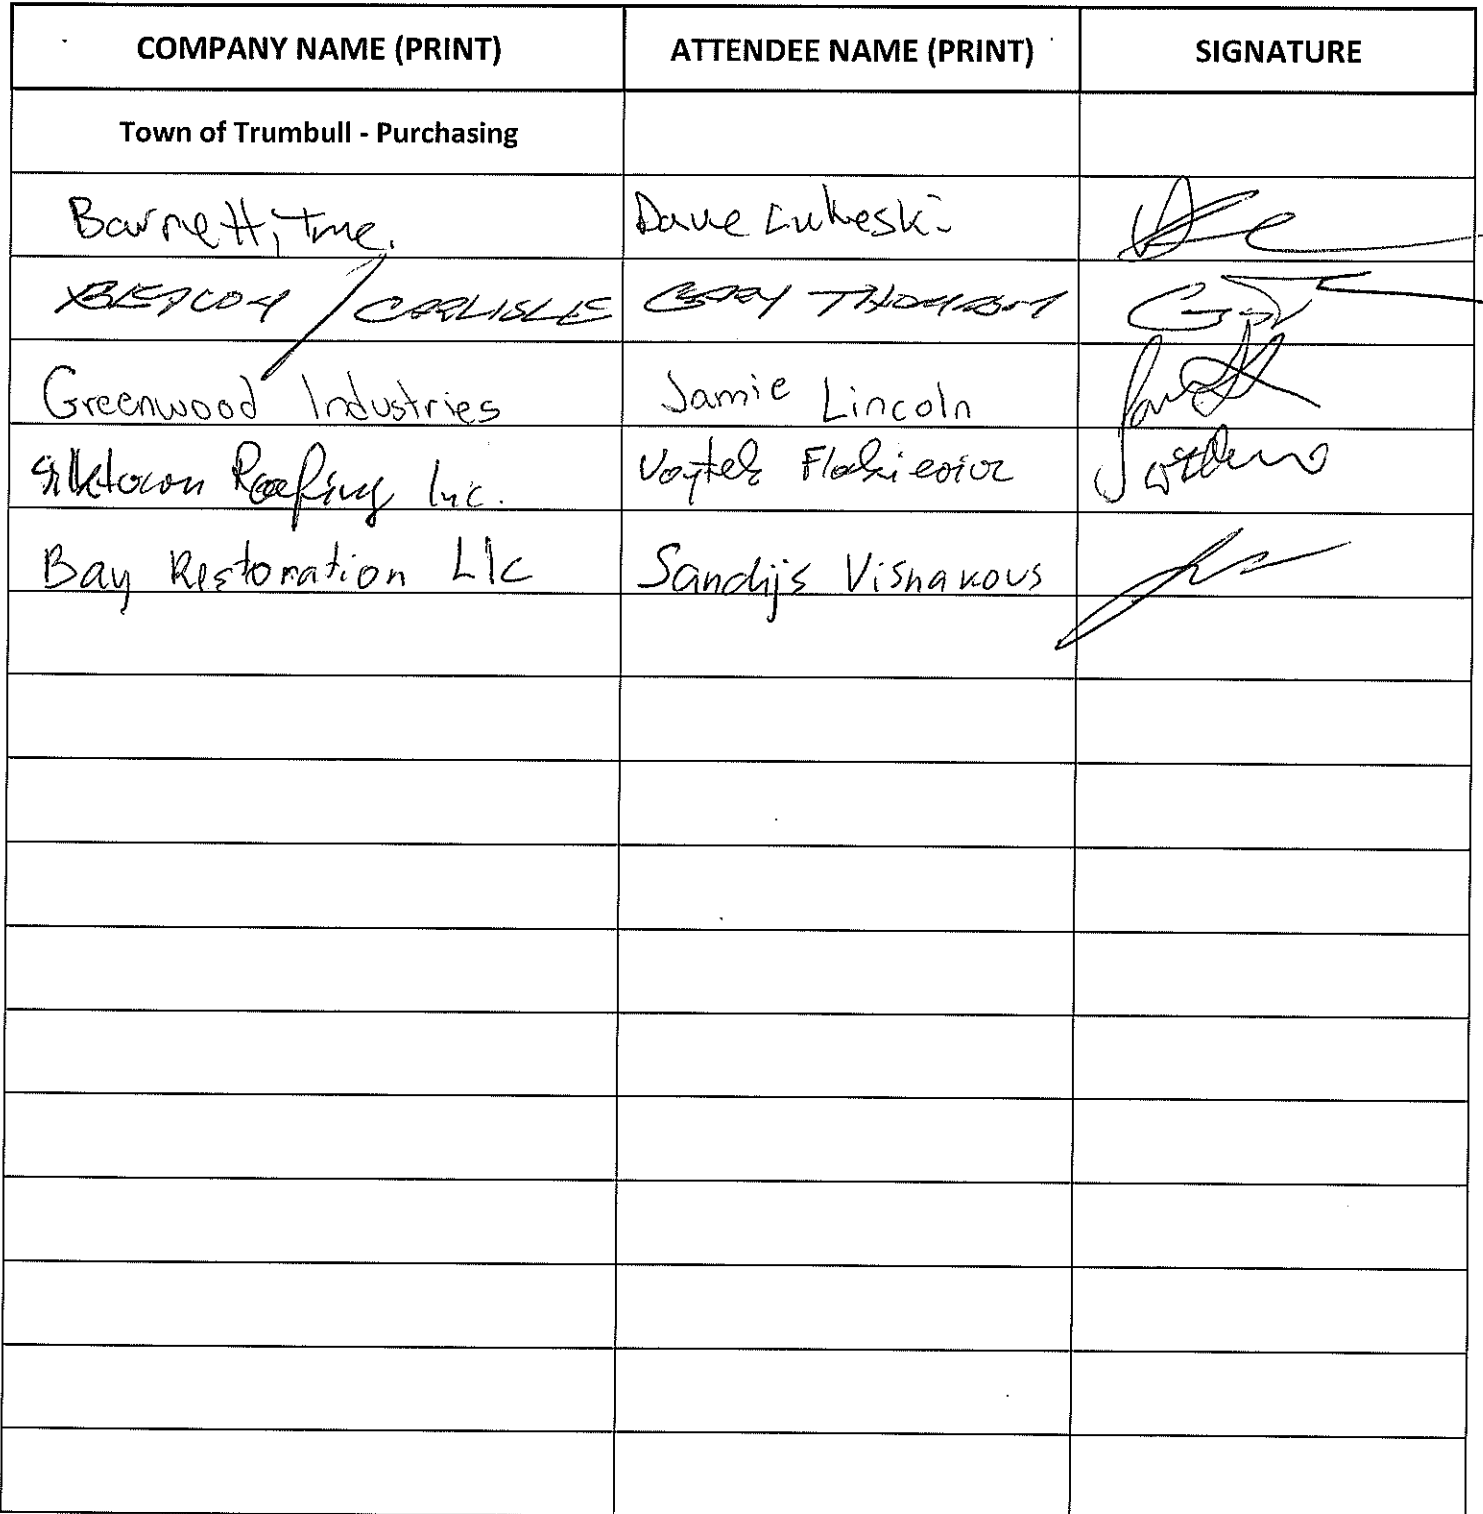 COMPANY NAME (PRINT) ATTENDEE NAME (PRINT) SIGNATURE
Town of Trumbull - Purchasing
Barnett, Inc. Dave Lukeski
BEACON / CARLISLE GARY THOMPSON
Greenwood Industries Jamie Lincoln
Silktown Roofing Inc. Voytek
Bay Restoration Llc Sandijs Visnakovs